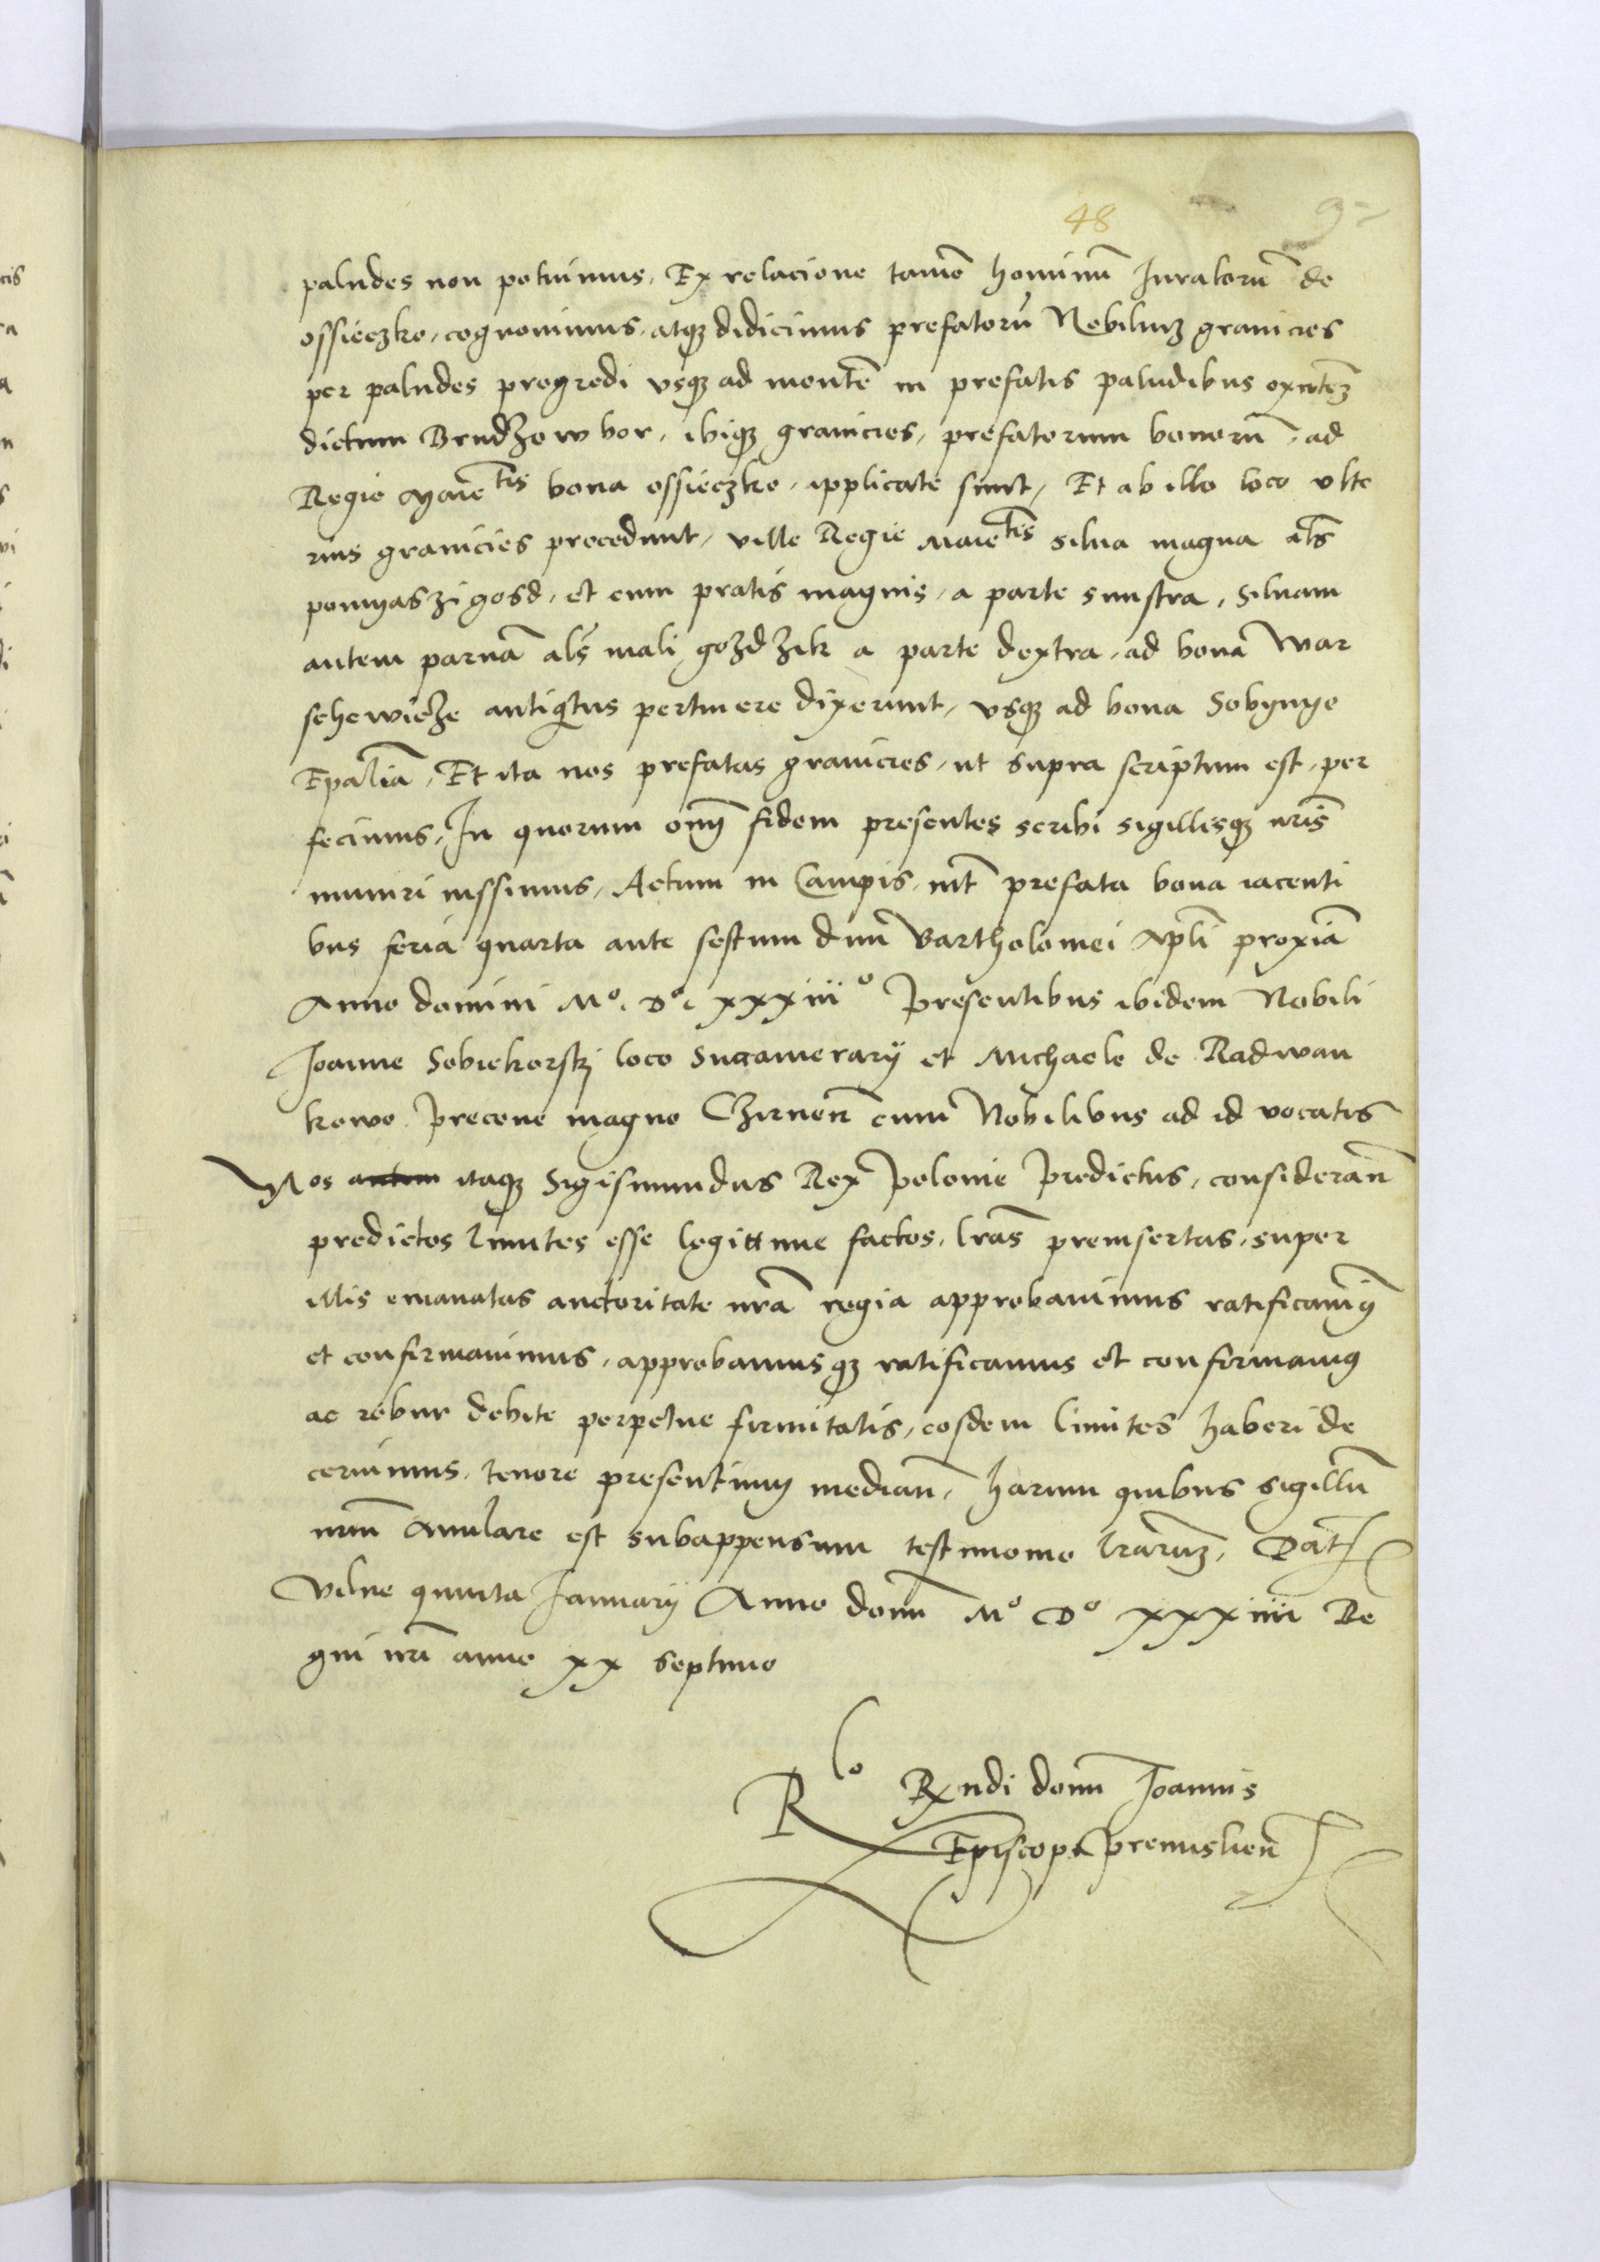 48
paludes non potuimus, Ex relacione tamē hominū Juratorū de
ossieczko, cognovimus, atq̄ꝫ didicimus prefatorū Nobiliuꝫ granicies
per paludes progredi usqꝫ ad montē in prefatis paludibus exn̄tēꝫ
dictum Brudzow bor, ibiqꝫ granicies, prefatorum bonorū, ad
Regie Maie͞tis bona ossieczko, applicate sunt, Et ab illo loco ulte
rius granicies procedunt, ville Regie Maie͞tis silua magna al̄s
pomyaszi gosd, et cum pratis magnis, a parte sinistra, Siluam
autem paruā al̄s mali gozdzik a parte dextra, ad bona War
schewicze antiqͥtus pertinere dixerunt, usqꝫ ad bona Sobynye
Ep̄aliā, Et ita nos prefatas granicies, ut supra scriptum est, per
fecimus, In quorum om̄ fidem presentes scribi sigillisqꝫ nr̄is
muniri iussimus, Actum in Campis, int̄ prefata bona iacenti
bus feria quarta ante festum diui Bartholomei Apl̄i proxiā
Anno domini Mº. Dº. xxxiiiº Presentibus ibidem Nobili
Joanne Sobiekorskj loco Succamerarij et Michaele de Radwan
kowo Precone magno Czirneñ cum Nobilibus ad id vocatis
Nos autem itaqꝫ Sigismundus Rex Polonie Predictus, considerañ
predictos limites esse legittime factos, lr̄as preinsertas, super
illis emanatas auctoritate nr̄a regia approbauimus ratificauimꝰ
et confirmauimus, approbamusqꝫ ratificamus et confirmamꝰ
ac robur debite perpetue firmitatis, eosdem limites haberi de
cernimus, tenore presentium mediañ, harum quibus sigillū
nr̄m Anulare est subappensum testimonio lr̄aruꝫ, Dat̄
Vilne quinta Januarij Anno domī Mº Dº xxxiiii Re
gni nr̄i anno xx septimo
Rlo Rx̄ndi domī Joannis
Episcopi Premislieñ